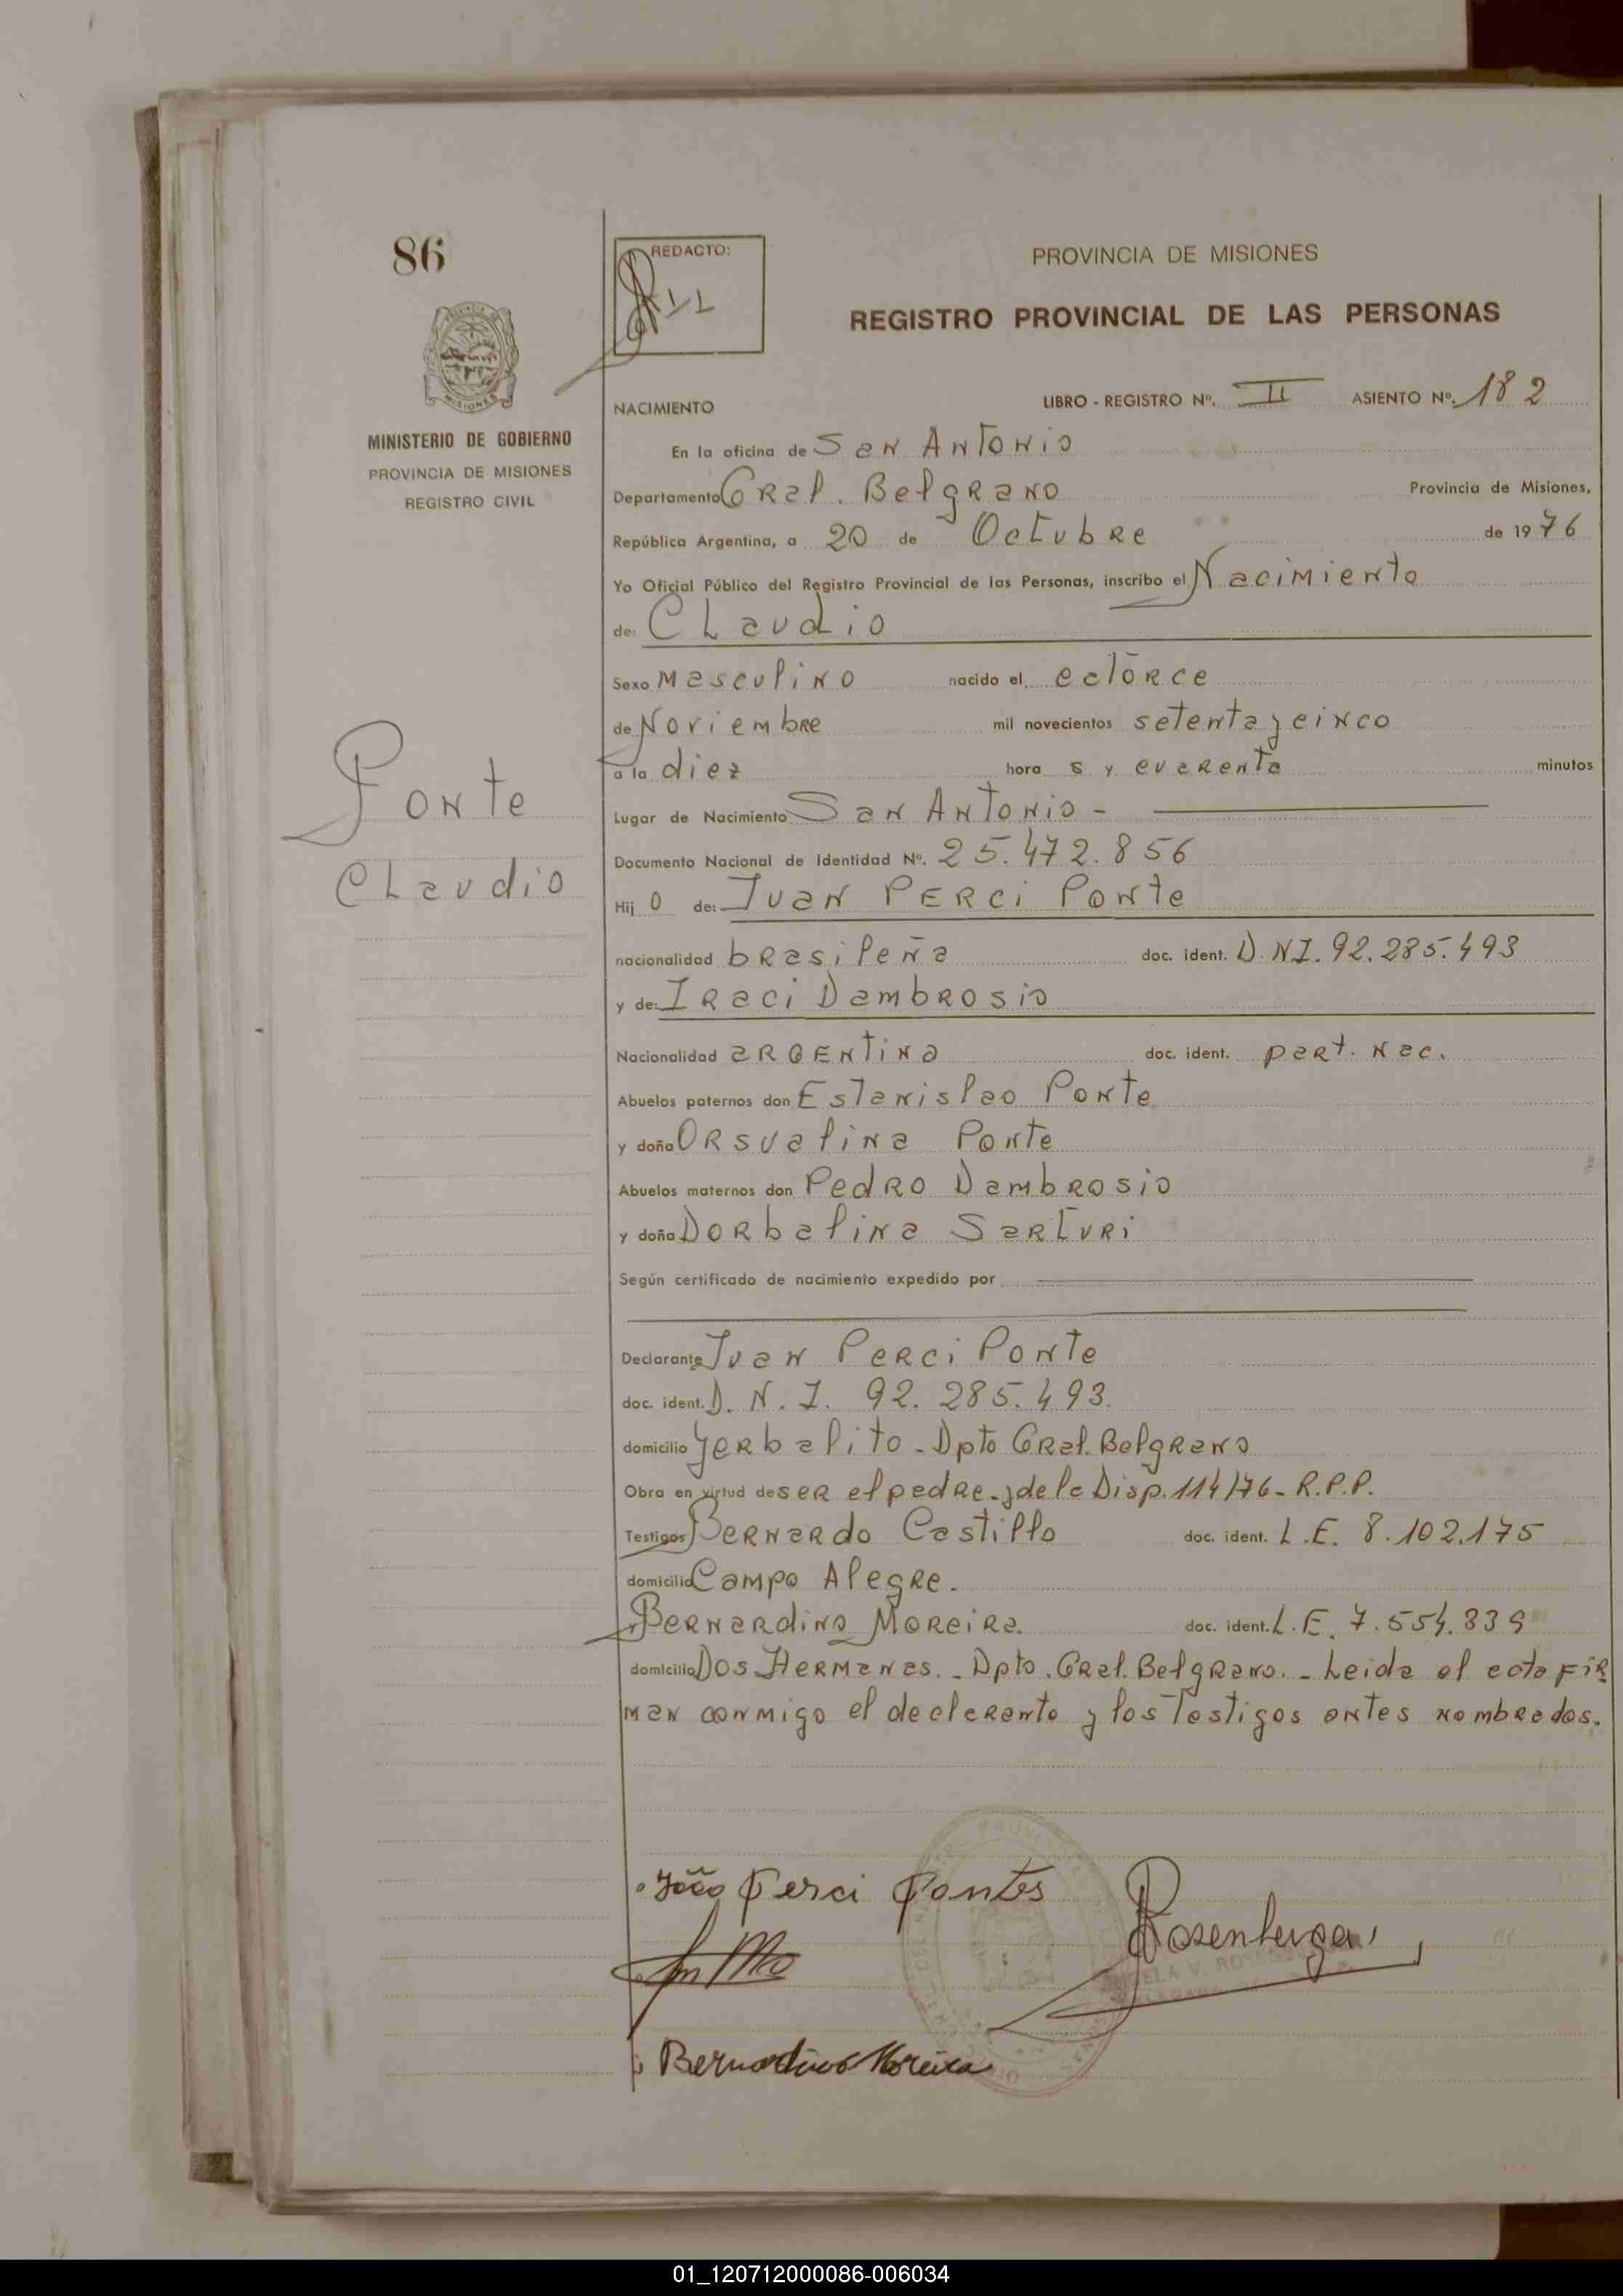 86
REDACTO:
PROVINCIA DE MISIONES
REGISTRO PROVINCIAL DE LAS PERSONAS
MINISTERIO DE GOBIERNO
PROVINCIA DE MISIONES
REGISTRO CIVIL
NACIMIENTO LIBRO - REGISTRO Nº. II ASIENTO Nº. 182
En la oficina de San Antonio
Departamento Gral. Belgrano Provincia de Misiones,
República Argentina, a 20 de Octubre de 1976
Yo Oficial Público del Registro Provincial de las Personas, inscribo el Nacimiento
de: Claudio
Sexo Masculino nacido el catorce
de Noviembre mil novecientos setenta y cinco
a la diez hora s y cuarenta minutos
Lugar de Nacimiento San Antonio -
Documento Nacional de Identidad Nº. 25.472.856
Hij o de: Juan Perci Ponte
nacionalidad brasileña doc. ident. D.NI. 92.285.493
y de: Iraci Dambrosio
Nacionalidad argentina doc. ident. part. nac.
Abuelos paternos don Estanislao Ponte
y doña Orsualina Ponte
Abuelos maternos don Pedro Dambrosio
y doña Dorbalina Sarturi
Según certificado de nacimiento expedido por
Declarante Juan Perci Ponte
doc. ident. D. N. I. 92. 285. 493.
domicilio Yerbalito - Dpto Gral. Belgrano
Obra en virtud de ser el padre - y de la Disp. 114/76 - R.P.P.
Testigos Bernardo Castillo doc. ident. L.E. 8.102.175
domicilio Campo Alegre.
y Bernardino Moreira. doc. ident. L.E. 7.554.339
domicilio Dos Hermanas. - Dpto. Gral. Belgrano. - Leida el acta fir
man conmigo el declarante y los testigos antes nombrados.
Ponte
Claudio
João Perci Pontes
Rosenberger
Bernardino Moreira
01_120712000086-006034